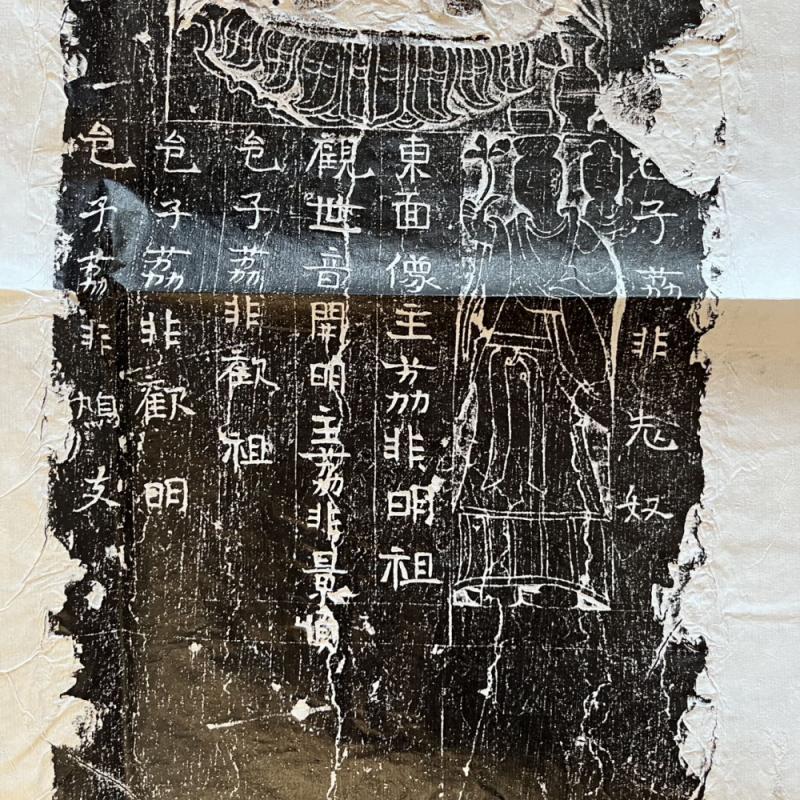 邑子荔非奴
東面像主荔非明祖
觀世音開明主荔非景
邑子荔非歡祖
邑子荔非歡明
邑子荔非鳩